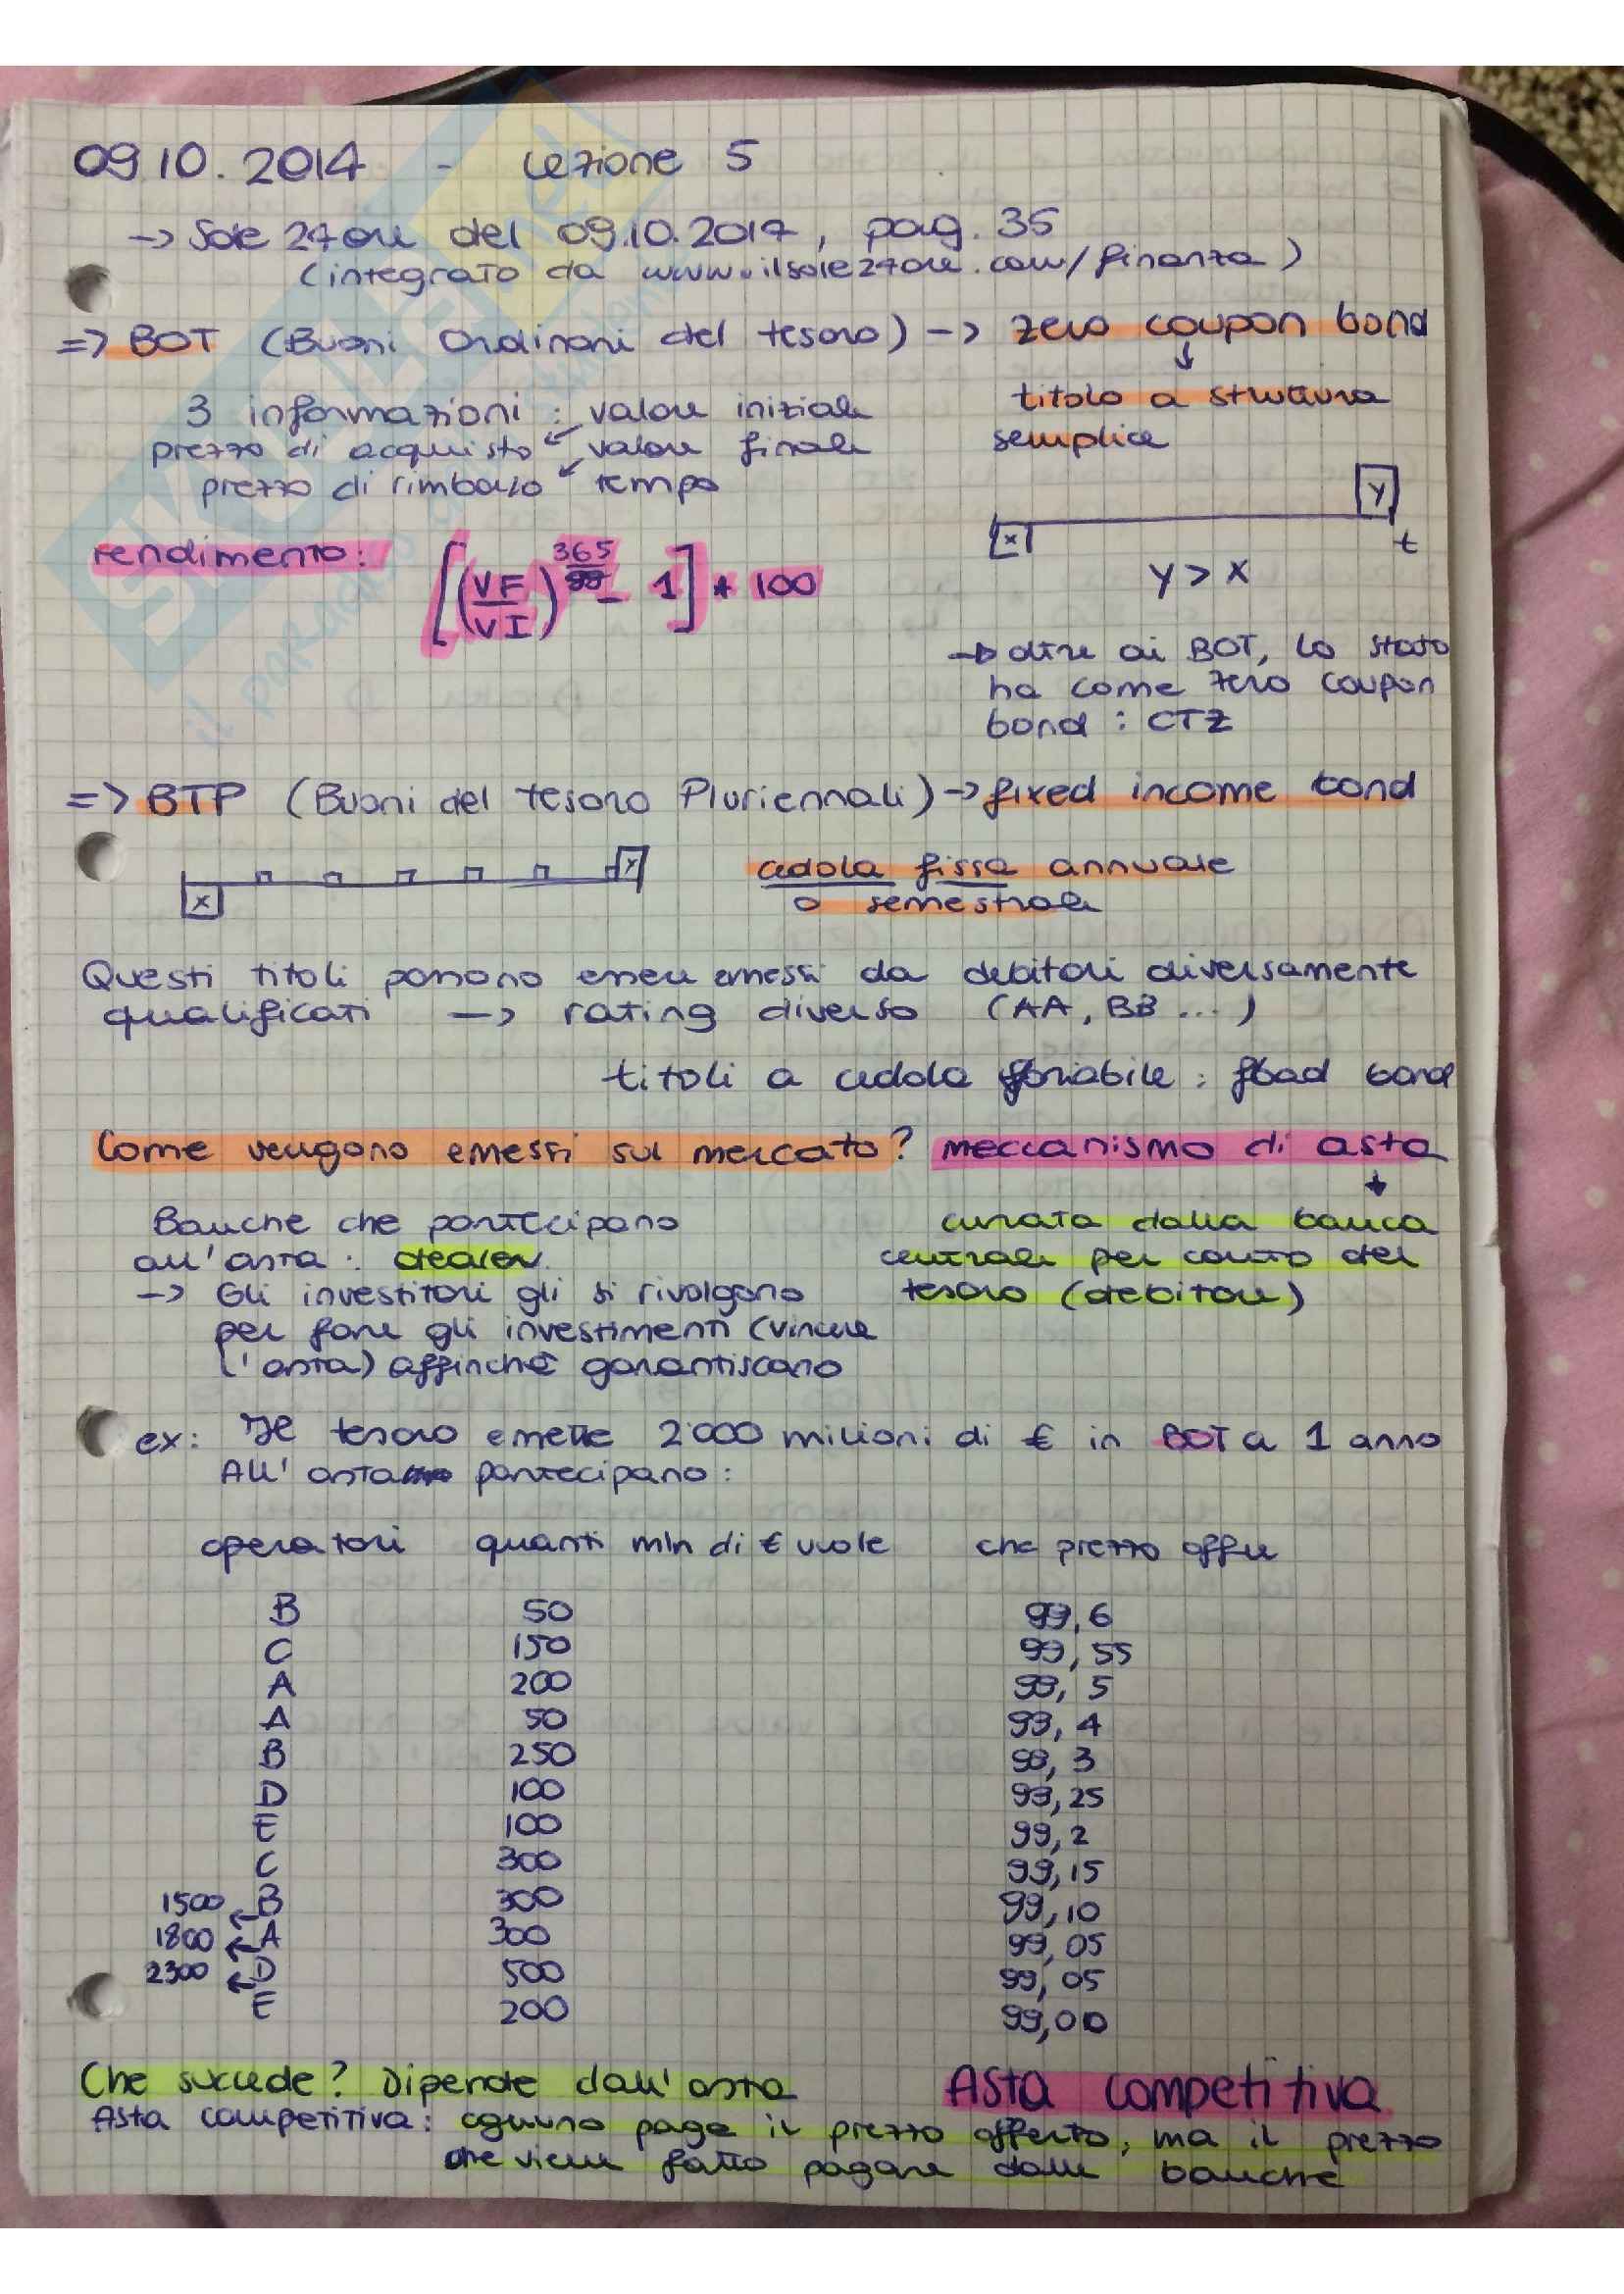 09.10.2014 - Lezione 5
-> Sole 24 ore del 09.10.2014, pag. 35
(integrato da www.ilsole24ore.com/finanza)
=> BOT (Buoni Ordinari del tesoro) -> zero coupon bond
↓
titolo a struttura
semplice
3 informazioni: valore iniziale
prezzo di acquisto ↙ valore finale
prezzo di rimborso ↙ tempo
x y
t
y > x
rendimento: [(VF/VI)^(365/gg) - 1] * 100
-> oltre ai BOT, lo stato
ha come zero coupon
bond: CTZ
=> BTP (Buoni del tesoro Pluriennali) -> fixed income bond
x x
cedola fissa annuale
o semestrale
Questi titoli possono essere emessi da debitori diversamente
qualificati -> rating diverso (AA, BB ...)
titoli a cedola variabile: bond
Come vengono emessi sul mercato? meccanismo di asta
↓
curata dalla banca
centrale per conto del
tesoro (debitore)
Banche che partecipano
all'asta: dealer.
-> Gli investitori gli si rivolgono
per fare gli investimenti (vincere
l'asta) affinchè garantiscano
ex: Il tesoro emette 2'000 milioni di € in BOT a 1 anno
All'asta partecipano:
operatori quanti mln di € vuole che prezzo offre
B 50 99,6
C 150 99,55
A 200 99,5
A 50 99,4
B 250 99,3
D 100 99,25
E 100 99,2
C 300 99,15
1500 ← B 300 99,10
1800 ← A 300 99,05
2300 ← D 500 99,05
E 200 99,00
Che succede? Dipende dall'asta Asta competitiva
Asta competitiva: ognuno paga il prezzo offerto, ma il prezzo
che viene fatto pagare dalle banche
SKUOLA.net
il paradiso dello studente